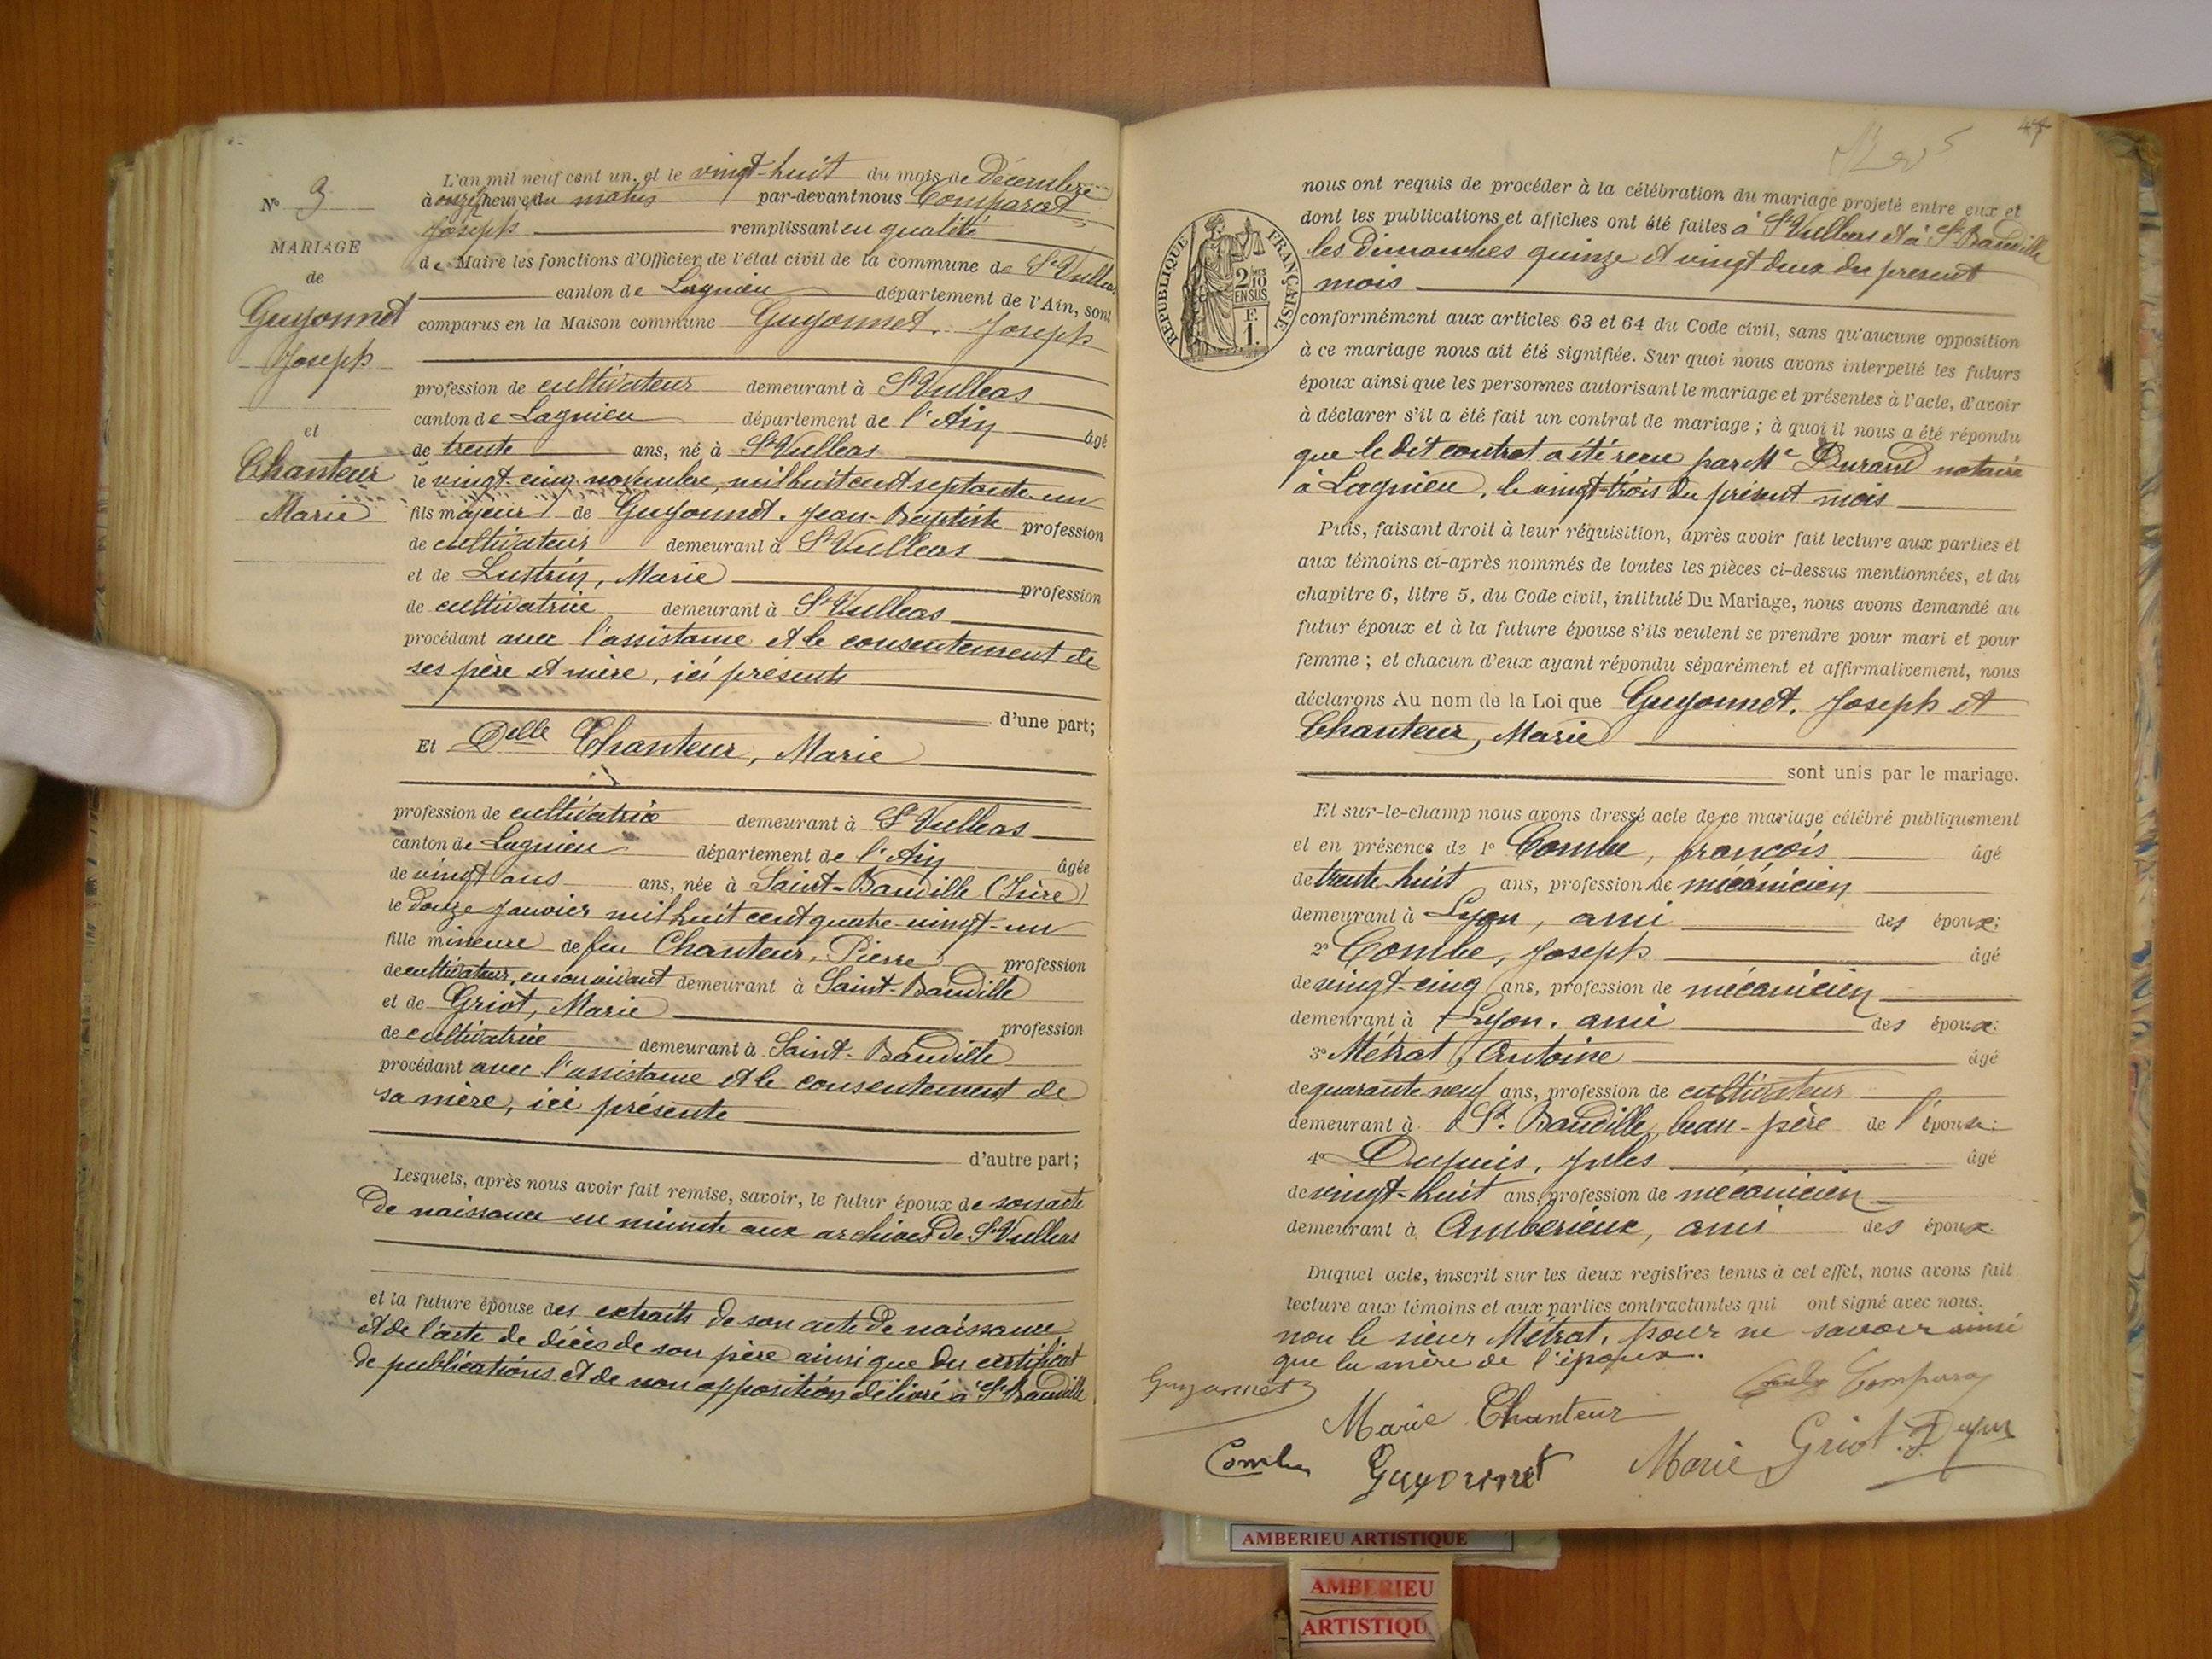 N° 3
MARIAGE
de
Guyonnet
Joseph
et
Chanteur
Marie
L'an mil neuf cent un, et le vingt-huit du mois de décembre
à onze heures du matin par-devant nous Comparat
Joseph remplissant en qualité
de Maire les fonctions d'Officier de l'état civil de la commune de St Vulbas
canton de Lagnieu département de l'Ain, sont
comparus en la Maison commune Guyonnet, Joseph
profession de cultivateur demeurant à St Vulbas
canton de Lagnieu département de l'Ain âgé
de trente ans, né à St Vulbas
le vingt-cinq novembre, mil huit cent septante-un
fils majeur de Guyonnet, Jean-Baptiste profession
de cultivateur demeurant à St Vulbas
et de Lustrin, Marie profession
de cultivatrice demeurant à St Vulbas
procédant avec l'assistance et le consentement de
ses père et mère, ici présents
d'une part;
Et Delle Chanteur, Marie
profession de cultivatrice demeurant à St Vulbas
canton de Lagnieu département de l'Ain âgée
de vingt ans ans, née à Saint-Baudille (Isère)
le douze janvier mil huit cent quatre-vingt-un
fille mineure de feu Chanteur, Pierre profession
de cultivateur, en son vivant demeurant à Saint-Baudille
et de Griot, Marie profession
de cultivatrice demeurant à Saint-Baudille
procédant avec l'assistance et le consentement de
sa mère, ici présente
d'autre part;
Lesquels, après nous avoir fait remise, savoir, le futur époux de son acte
de naissance en minute aux archives de St Vulbas
et la future épouse des extraits de son acte de naissance
et de l'acte de décès de son père ainsi que du certificat
de publications et de non opposition, délivré à St Baudille
47
nous ont requis de procéder à la célébration du mariage projeté entre eux et
dont les publications et affiches ont été faites à St Vulbas et à St Baudille
les dimanches quinze et vingt deux du présent
mois
RÉPUBLIQUE FRANÇAISE
2 MES
10
EN SUS
F.
1.
conformément aux articles 63 et 64 du Code civil, sans qu'aucune opposition
à ce mariage nous ait été signifiée. Sur quoi nous avons interpellé les futurs
époux ainsi que les personnes autorisant le mariage et présentes à l'acte, d'avoir
à déclarer s'il a été fait un contrat de mariage; à quoi il nous a été répondu
que le dit contrat a été reçu par Me Durand notaire
à Lagnieu, le vingt-trois du présent mois
Puis, faisant droit à leur réquisition, après avoir fait lecture aux parties et
aux témoins ci-après nommés de toutes les pièces ci-dessus mentionnées, et du
chapitre 6, titre 5, du Code civil, intitulé Du Mariage, nous avons demandé au
futur époux et à la future épouse s'ils veulent se prendre pour mari et pour
femme; et chacun d'eux ayant répondu séparément et affirmativement, nous
déclarons Au nom de la Loi que Guyonnet, Joseph et
Chanteur, Marie
sont unis par le mariage.
Et sur-le-champ nous avons dressé acte de ce mariage célébré publiquement
et en présence de 1° Combe, françois âgé
de trente-huit ans, profession de mécanicien
demeurant à Lyon, ami des époux;
2° Combe, Joseph âgé
de vingt-cinq ans, profession de mécanicien
demeurant à Lyon, ami des époux;
3° Métrat, Antoine âgé
de quarante neuf ans, profession de cultivateur
demeurant à St. Baudille, beau-père de l'épouse;
4° Dupuis, Jules âgé
de vingt-huit ans, profession de mécanicien
demeurant à Ambérieux, ami des époux.
Duquel acte, inscrit sur les deux registres tenus à cet effet, nous avons fait
lecture aux témoins et aux parties contractantes qui ont signé avec nous,
non le sieur Métrat, pour ne savoir ainsi
que la mère de l'époux.
Guyonnet
Marie Chanteur
Comparat
Combe
Guyonnet
Marie Griot
AMBERIEU ARTISTIQUE
AMBERIEU
ARTISTIQU